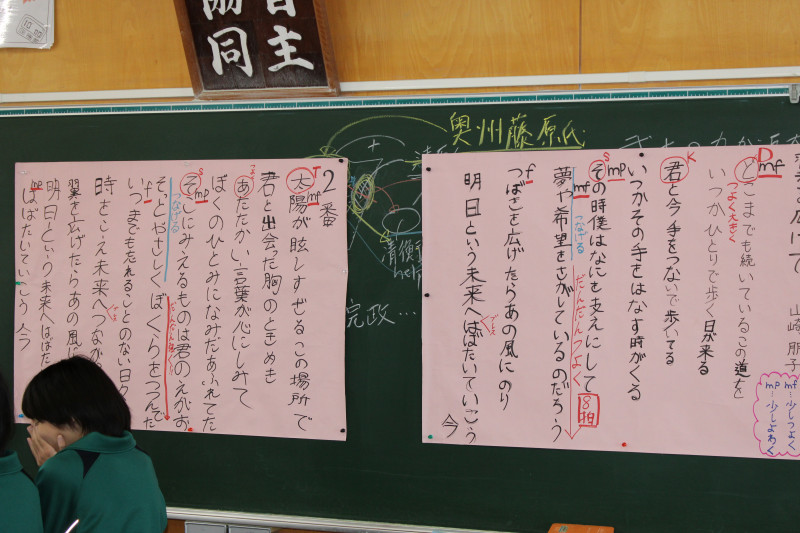 自主
協同
奥州藤原氏
完政…
翼を広げて
山崎朋子
Dmf
どこまでも続いているこの道を
つよく大きく
いつかひとりで歩く日が来る
K
君と今手をつないで歩いてる
いつかその手をはなす時がくる
Smp
その時僕はなにを支えにして
8拍
mf
つなげる
だんだんつよく
夢や希望をさがしているのだろう
f
つばさを広げたらあの風にのり
明日という未来へはばたいていこう
今
mf…少しつよく
mp…少しよわく
2番
Tmf
太陽が眩しすぎるこの場所で
君と出会った胸のときめき
あたたかい言葉が心にしみて
ぼくのひとみになみだあふれてた
Smp
そこにみえるものは君のえがお
つなげる
そっとやさしくぼくらをつつんだ
f
いつまでもたれることのない日
時をこえ未来へつなが
翼を広げたらあの風に
明日という未来へはばた
はばたいていこう今